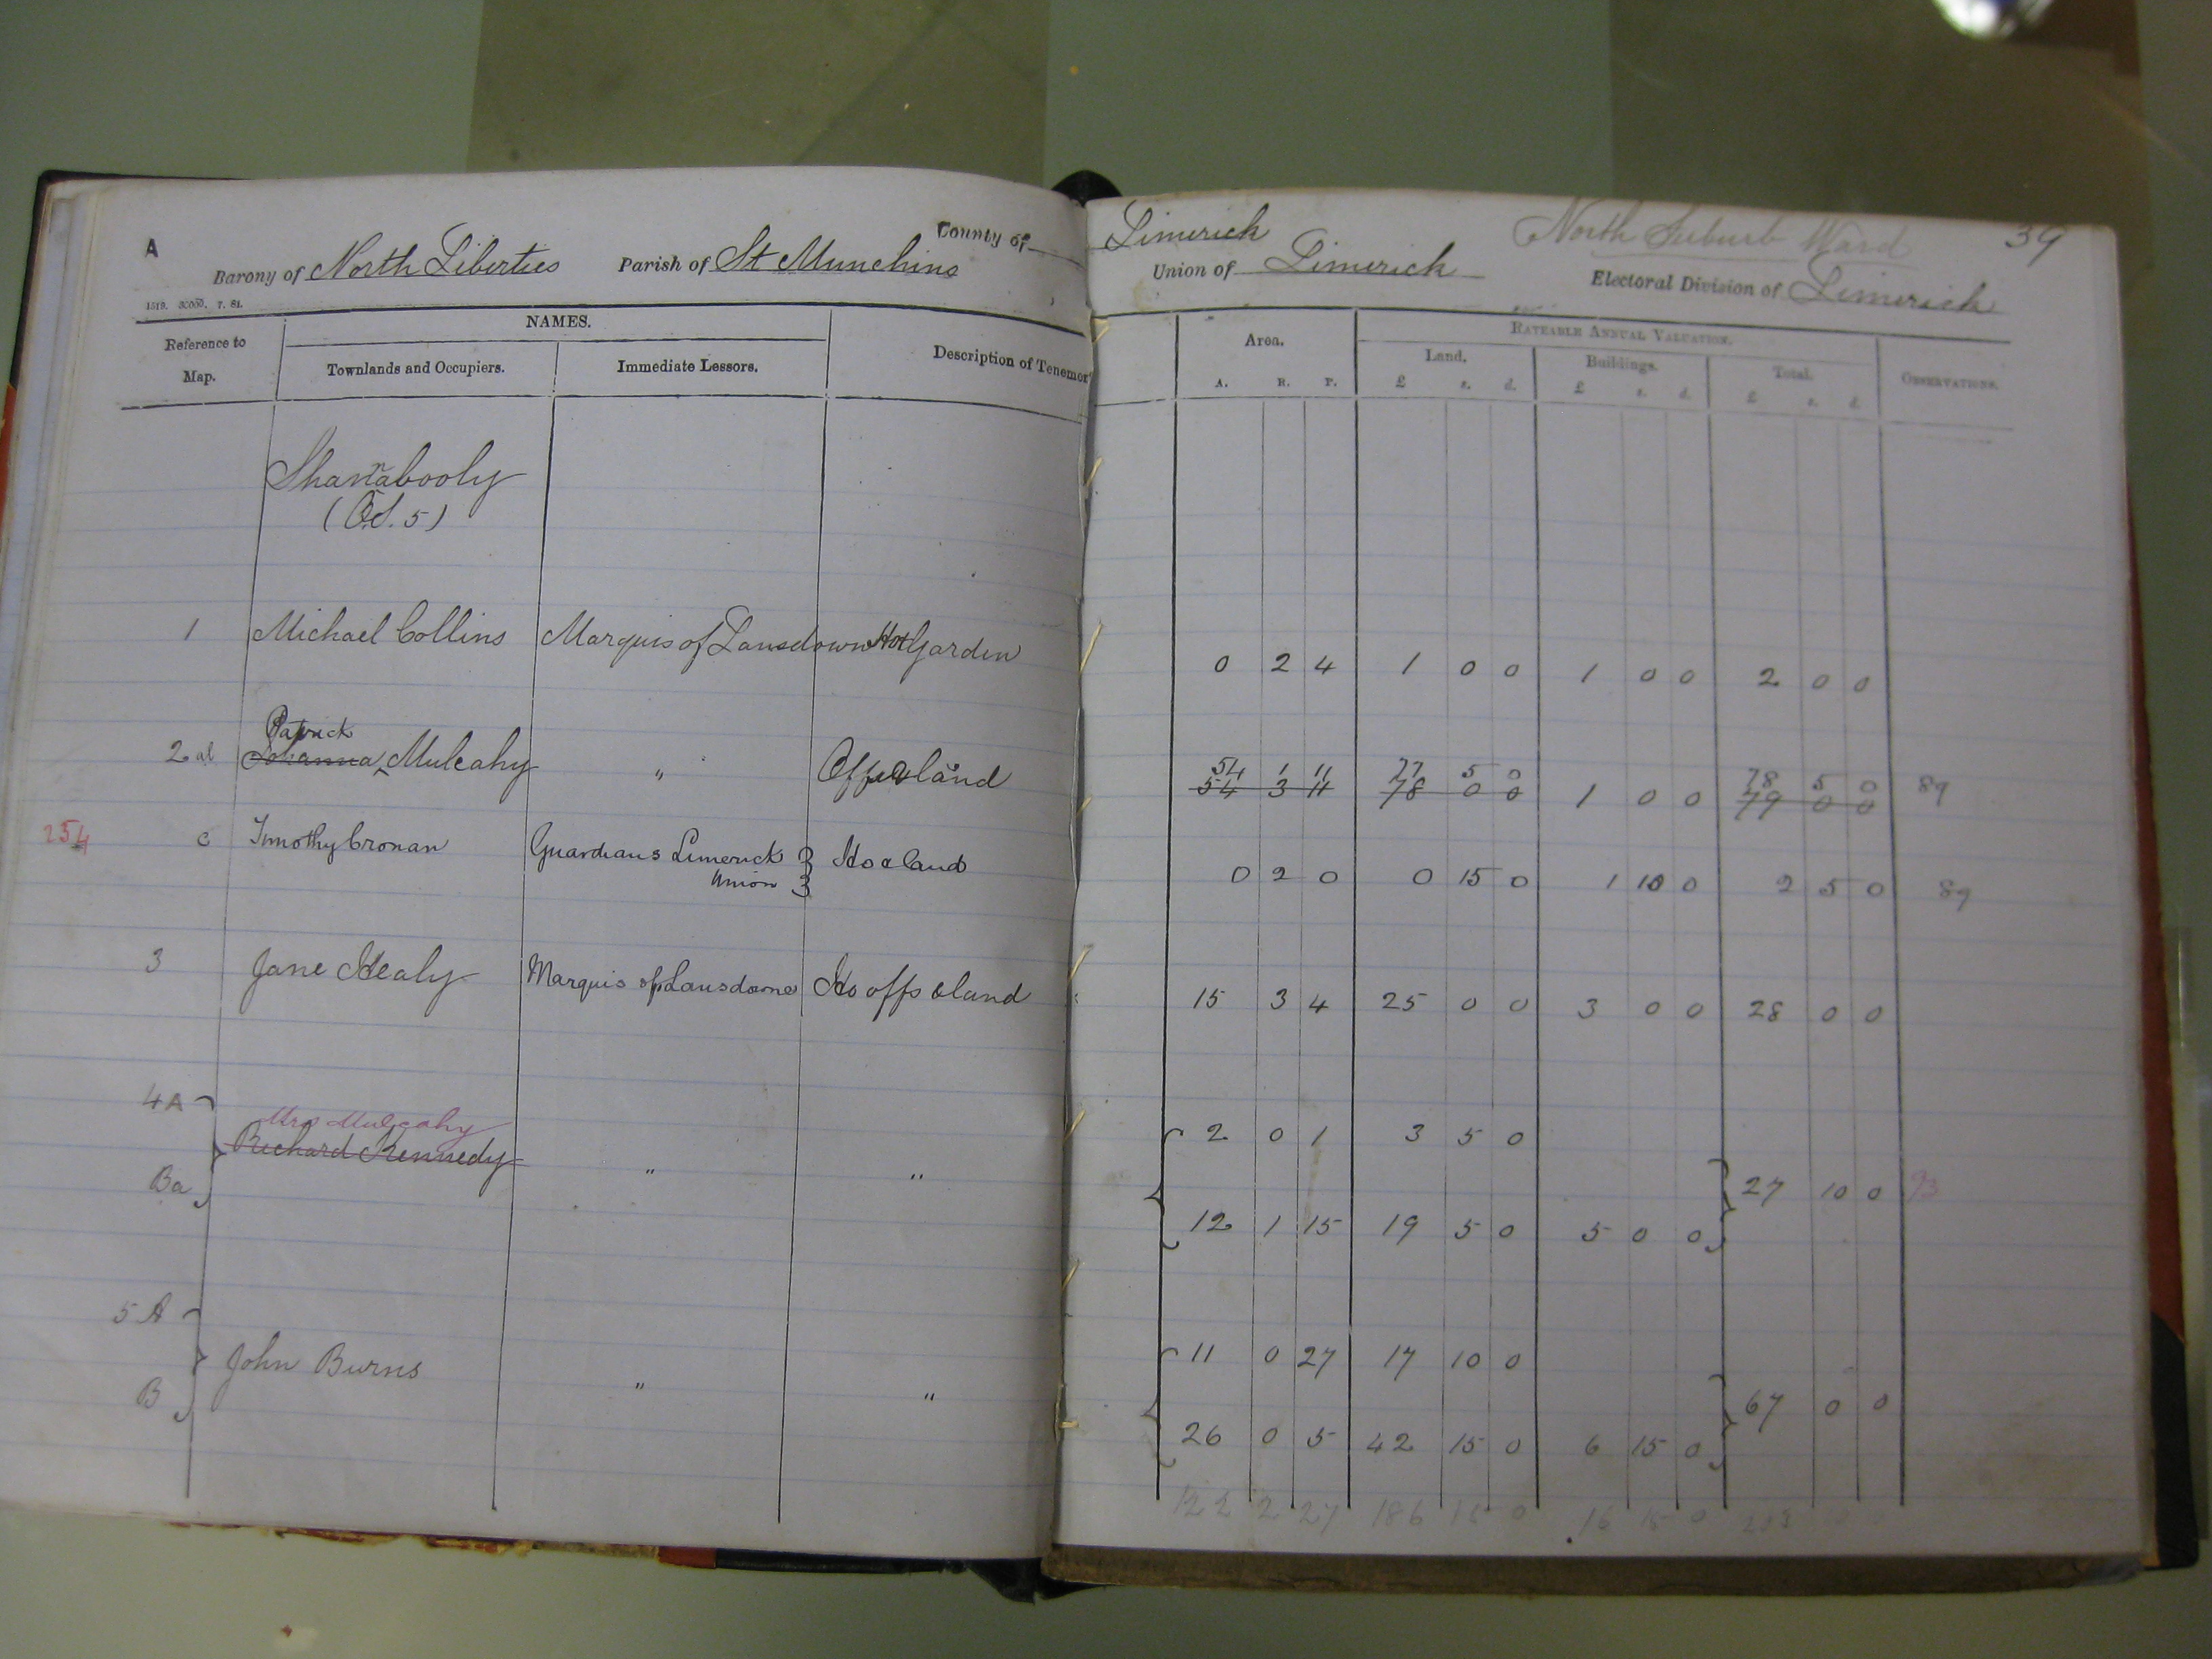 A
County of Limerick
North Suburb Ward
39
Barony of North Liberties Parish of St Munchins
Union of Limerick Electoral Division of Limerick
Reference to Map.
NAMES.
Townlands and Occupiers.
Immediate Lessors.
Description of Tenemen
Area.
A. R. P.
RATEABLE ANNUAL VALUATION.
Land.
£ s. d.
Buildings.
£ s. d.
Total.
£ s. d.
OBSERVATIONS.
Shanabooly
(O.S. 5)
1 Michael Collins Marquis of Lansdown Ho & Garden 0 2 4 1 0 0 1 0 0 2 0 0
Patrick 54 1 11 77 5 0 78 5 0
2 Johanna Mulcahy " Offs & land 54 3 11 78 0 0 1 0 0 79 0 0 89
254 c Timothy Cronan Guardians Limerick Ho & land 0 2 0 0 15 0 1 10 0 2 5 0 89
Union
3 Jane Healy Marquis of Lansdowne Ho offs & land 15 3 4 25 0 0 3 0 0 28 0 0
4A 2 0 1 3 5 0
Mrs Mulcahy
Richard Kennedy " " 27 10 0 93
Ba 12 1 15 19 5 0 5 0 0
5 A 11 0 27 17 10 0
John Burns " " 67 0 0
B 26 0 5 42 15 0 6 15 0
122 2 27 186 15 0 16 15 0